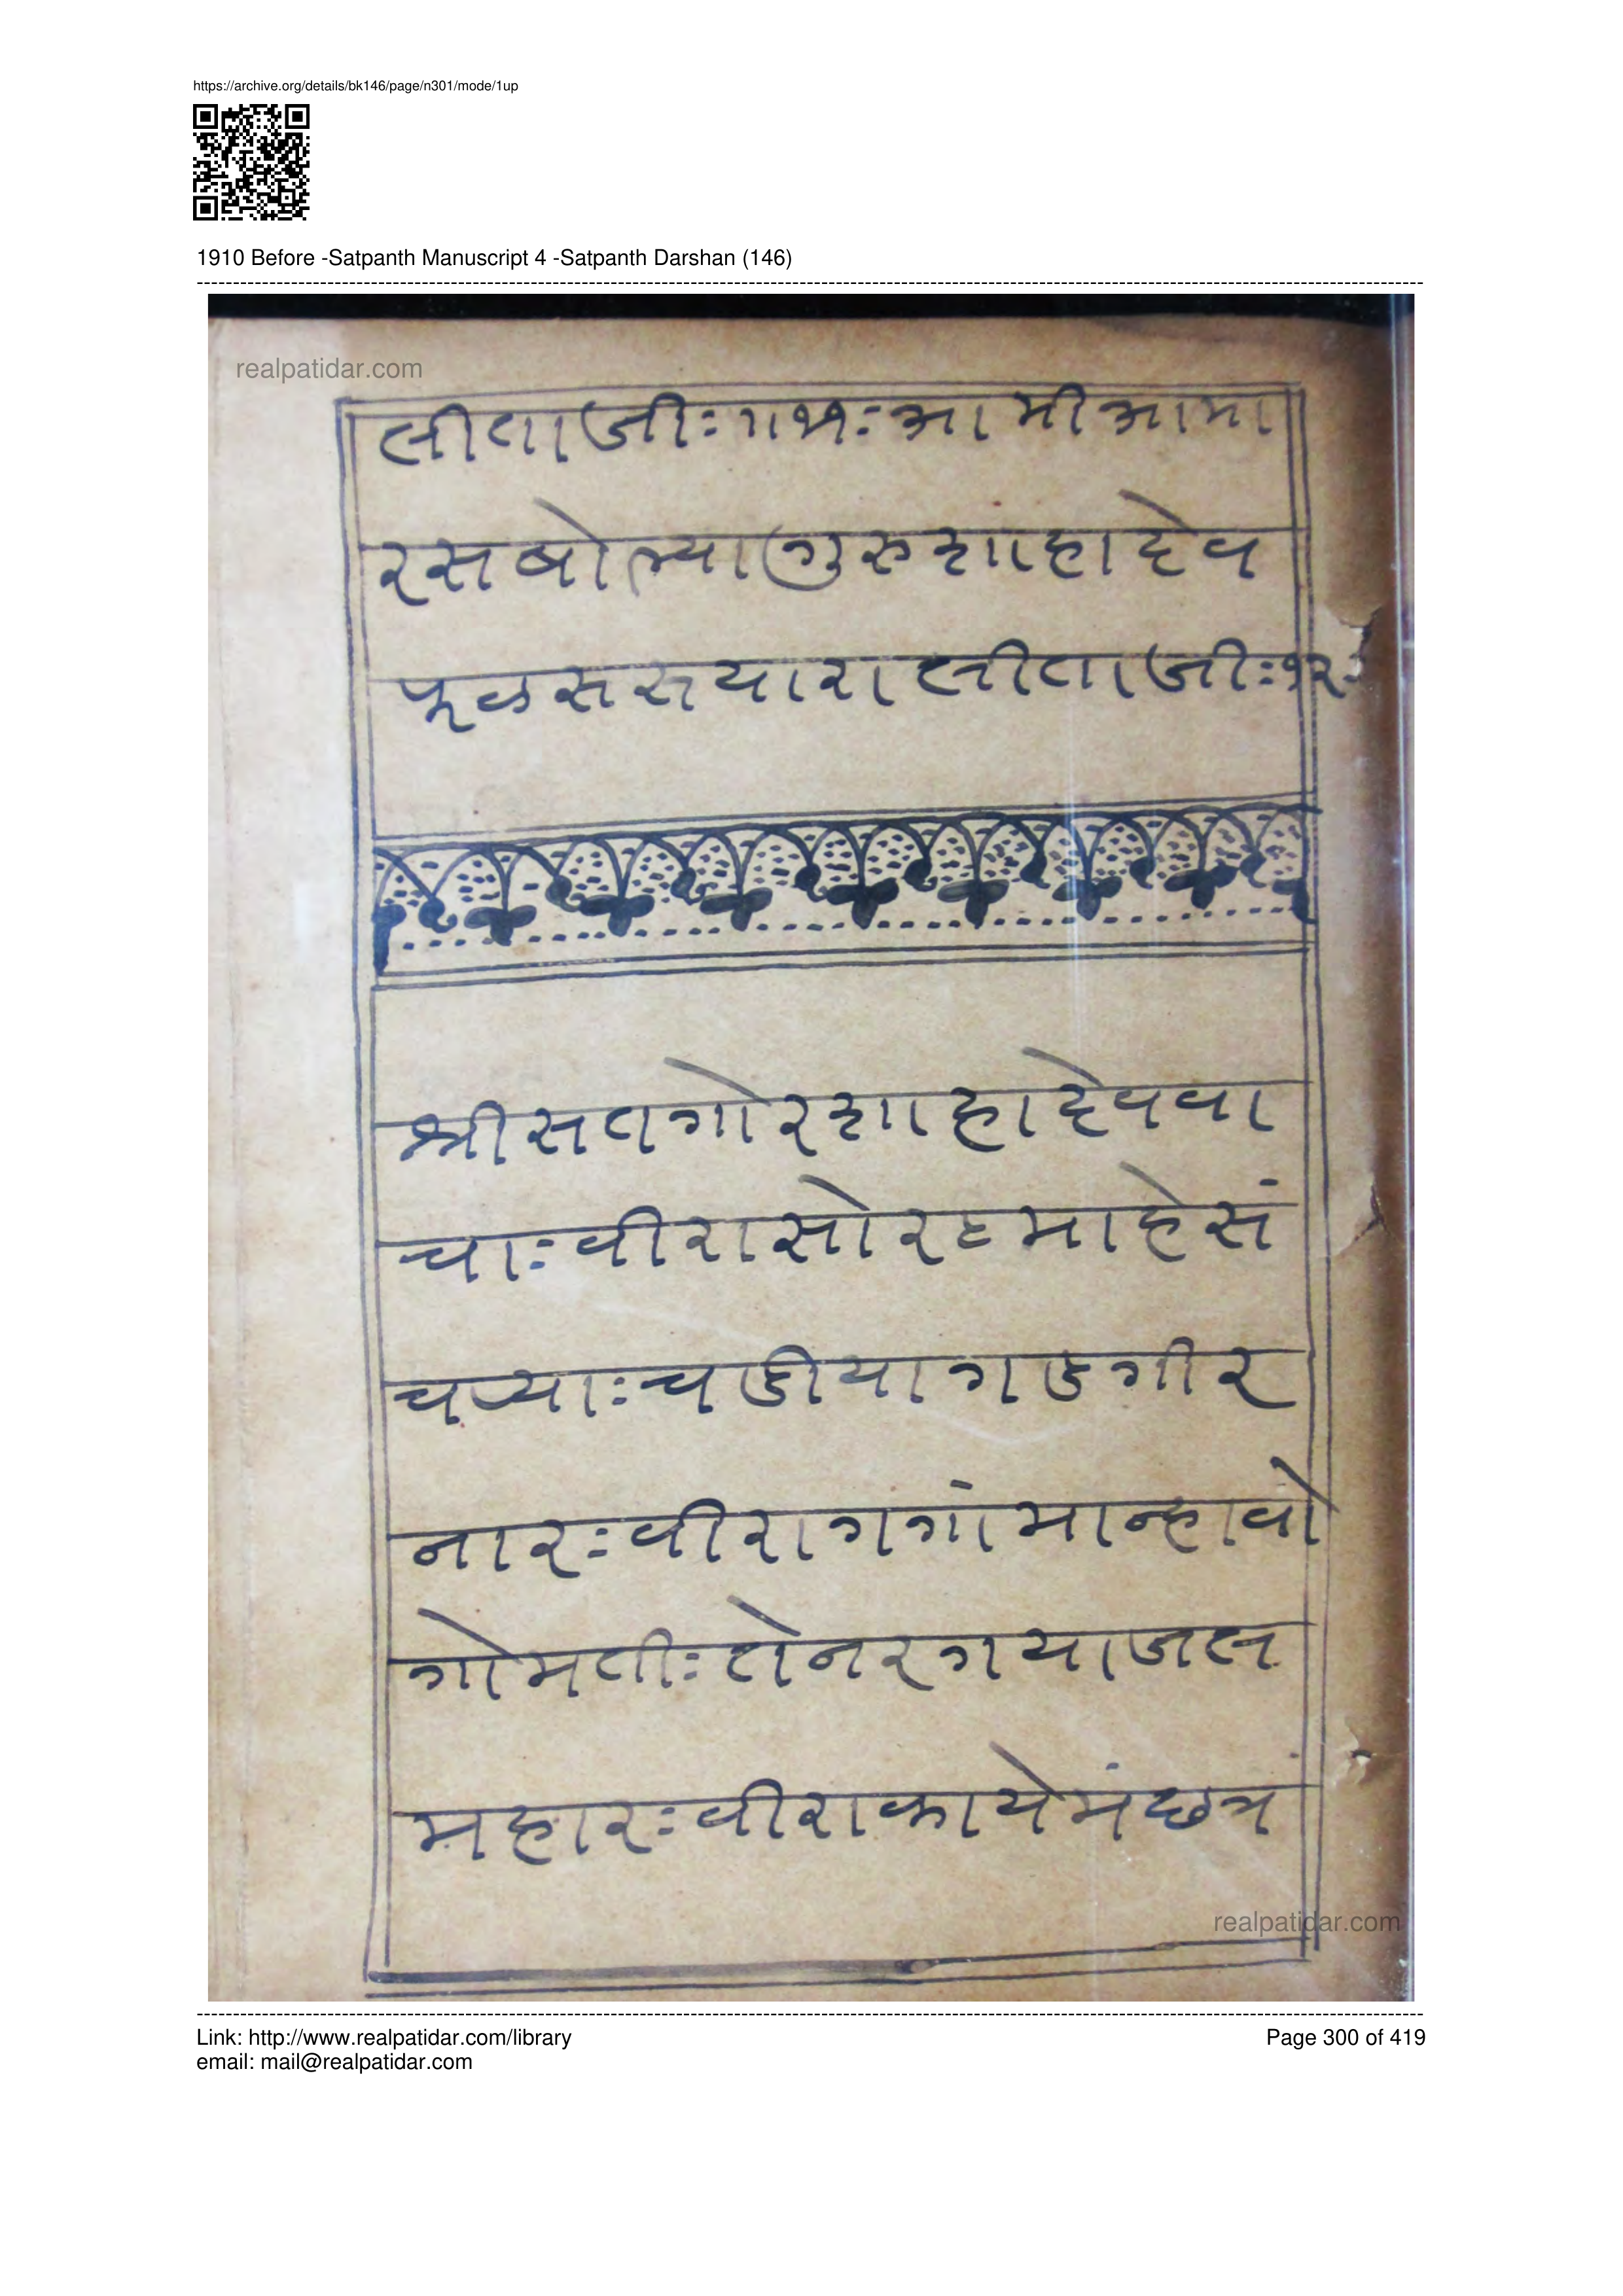 https://archive.org/details/bk146/page/n301/mode/1up
1910 Before -Satpanth Manuscript 4 -Satpanth Darshan (146)
realpatidar.com
सीताजीः॥११ः आमीआमा
रसबोल्यागुरुशाहादेव
फूळससयारासीताजीः१२ः
श्रीसतगोरशाहादेववा
चाः वीरासोरठमाहेसं
चर्‍याः चडीयागडगीर
नारः वीरागगांमान्हावो
गोमतीः तेनरगयाजल
महारः वीराकायेमंछत्र
realpatidar.com
Link: http://www.realpatidar.com/library
Page 300 of 419
email: mail@realpatidar.com